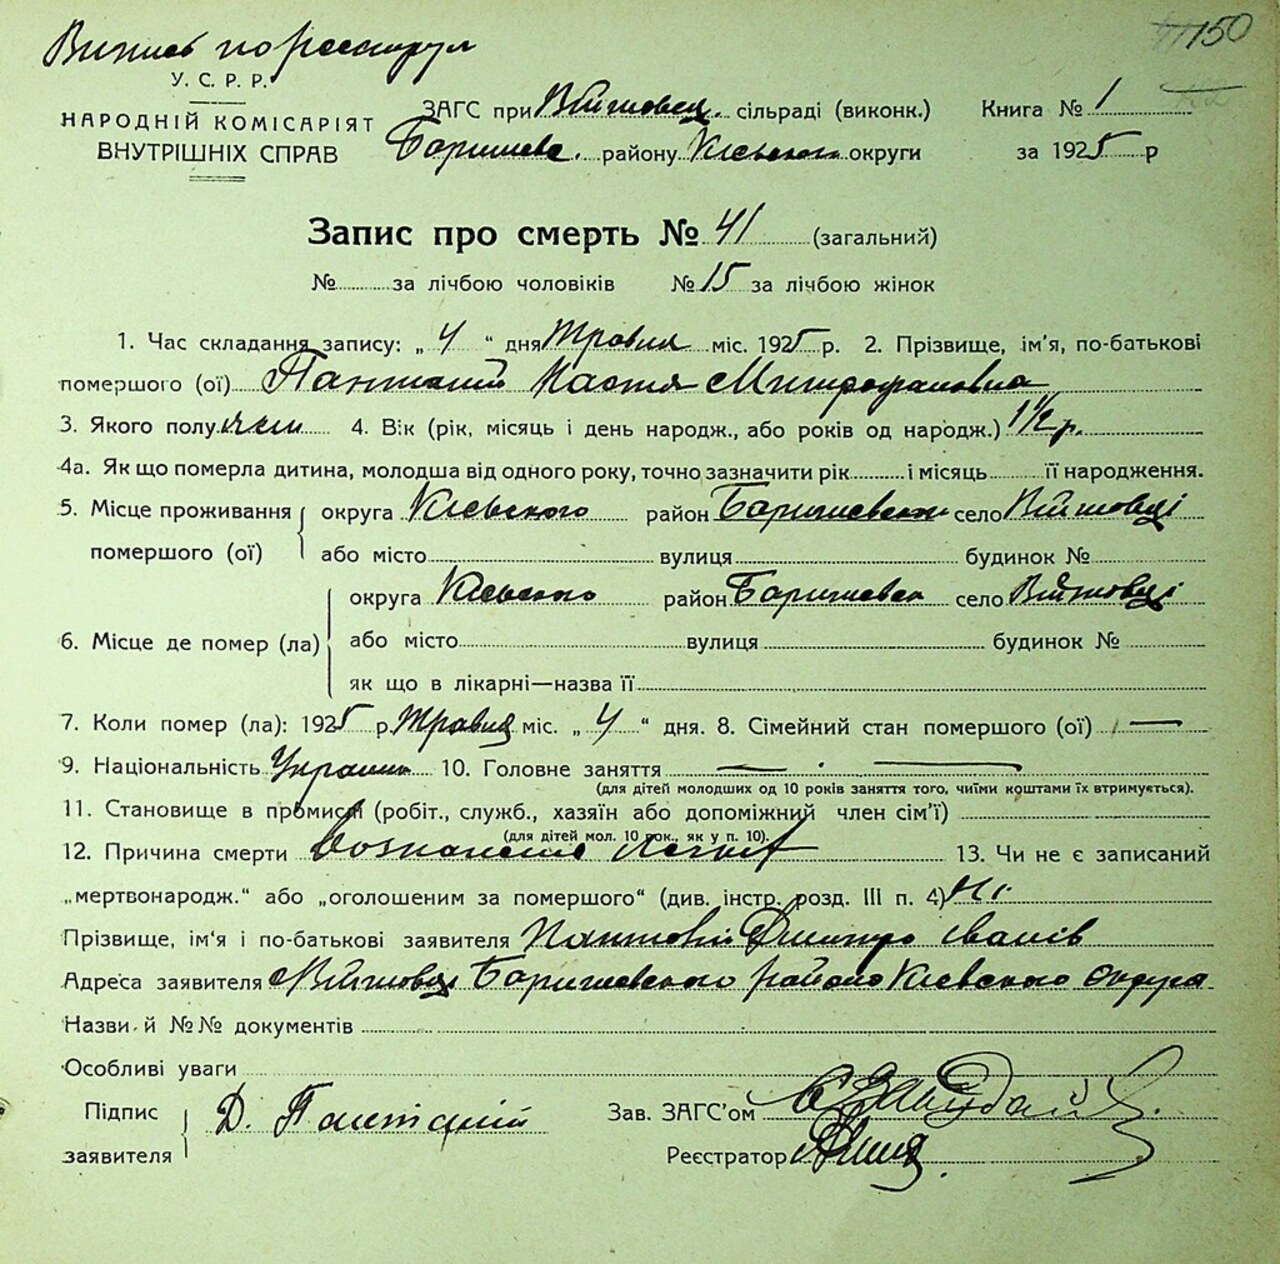 150
У. С. Р. Р.
НАРОДНІЙ КОМІСАРІЯТ
ВНУТРІШНІХ СПРАВ
ЗАГС при Війтовец. сільраді (виконк.)
Баришев. району Київського округи
Книга № 1
за 1925 р
Запис про смерть № 41 (загальний)
№ за лічбою чоловіків № 15 за лічбою жінок
1. Час складання запису: „ 4 “ дня Травня міс. 1925 р. 2. Прізвище, ім'я, по-батькові
помершого (ої) Настя Митрофановна
3. Якого полу жен 4. Вік (рік, місяць і день народж., або років од народж.) 1 1/2 р.
4а. Як що померла дитина, молодша від одного року, точно зазначити рік і місяць її народження.
5. Місце проживання помершого (ої) округа Київського район Баришевськ село Війтовці
або місто вулиця будинок №
6. Місце де помер (ла) округа Київського район Баришевськ село Війтовці
або місто вулиця будинок №
як що в лікарні—назва її
7. Коли помер (ла): 1925 р. Травня міс. „ 4 “ дня. 8. Сімейний стан помершого (ої) —
9. Національність Україн 10. Головне заняття —
(для дітей молодших од 10 років заняття того, чиїми коштами їх втримується).
11. Становище в промислі (робіт., служб., хазяїн або допоміжний член сім'ї)
(для дітей мол. 10 рок., як у п. 10).
12. Причина смерти 13. Чи не є записаний
„мертвонародж.“ або „оголошеним за помершого“ (див. інстр. розд. III п. 4) Ні
Прізвище, ім'я і по-батькові заявителя Дмитро Іванів
Адреса заявителя Війтовці Баришевского району Київського Округа
Назви й №№ документів
Особливі уваги
Підпис заявителя Д.
Зав. ЗАГС'ом
Реєстратор